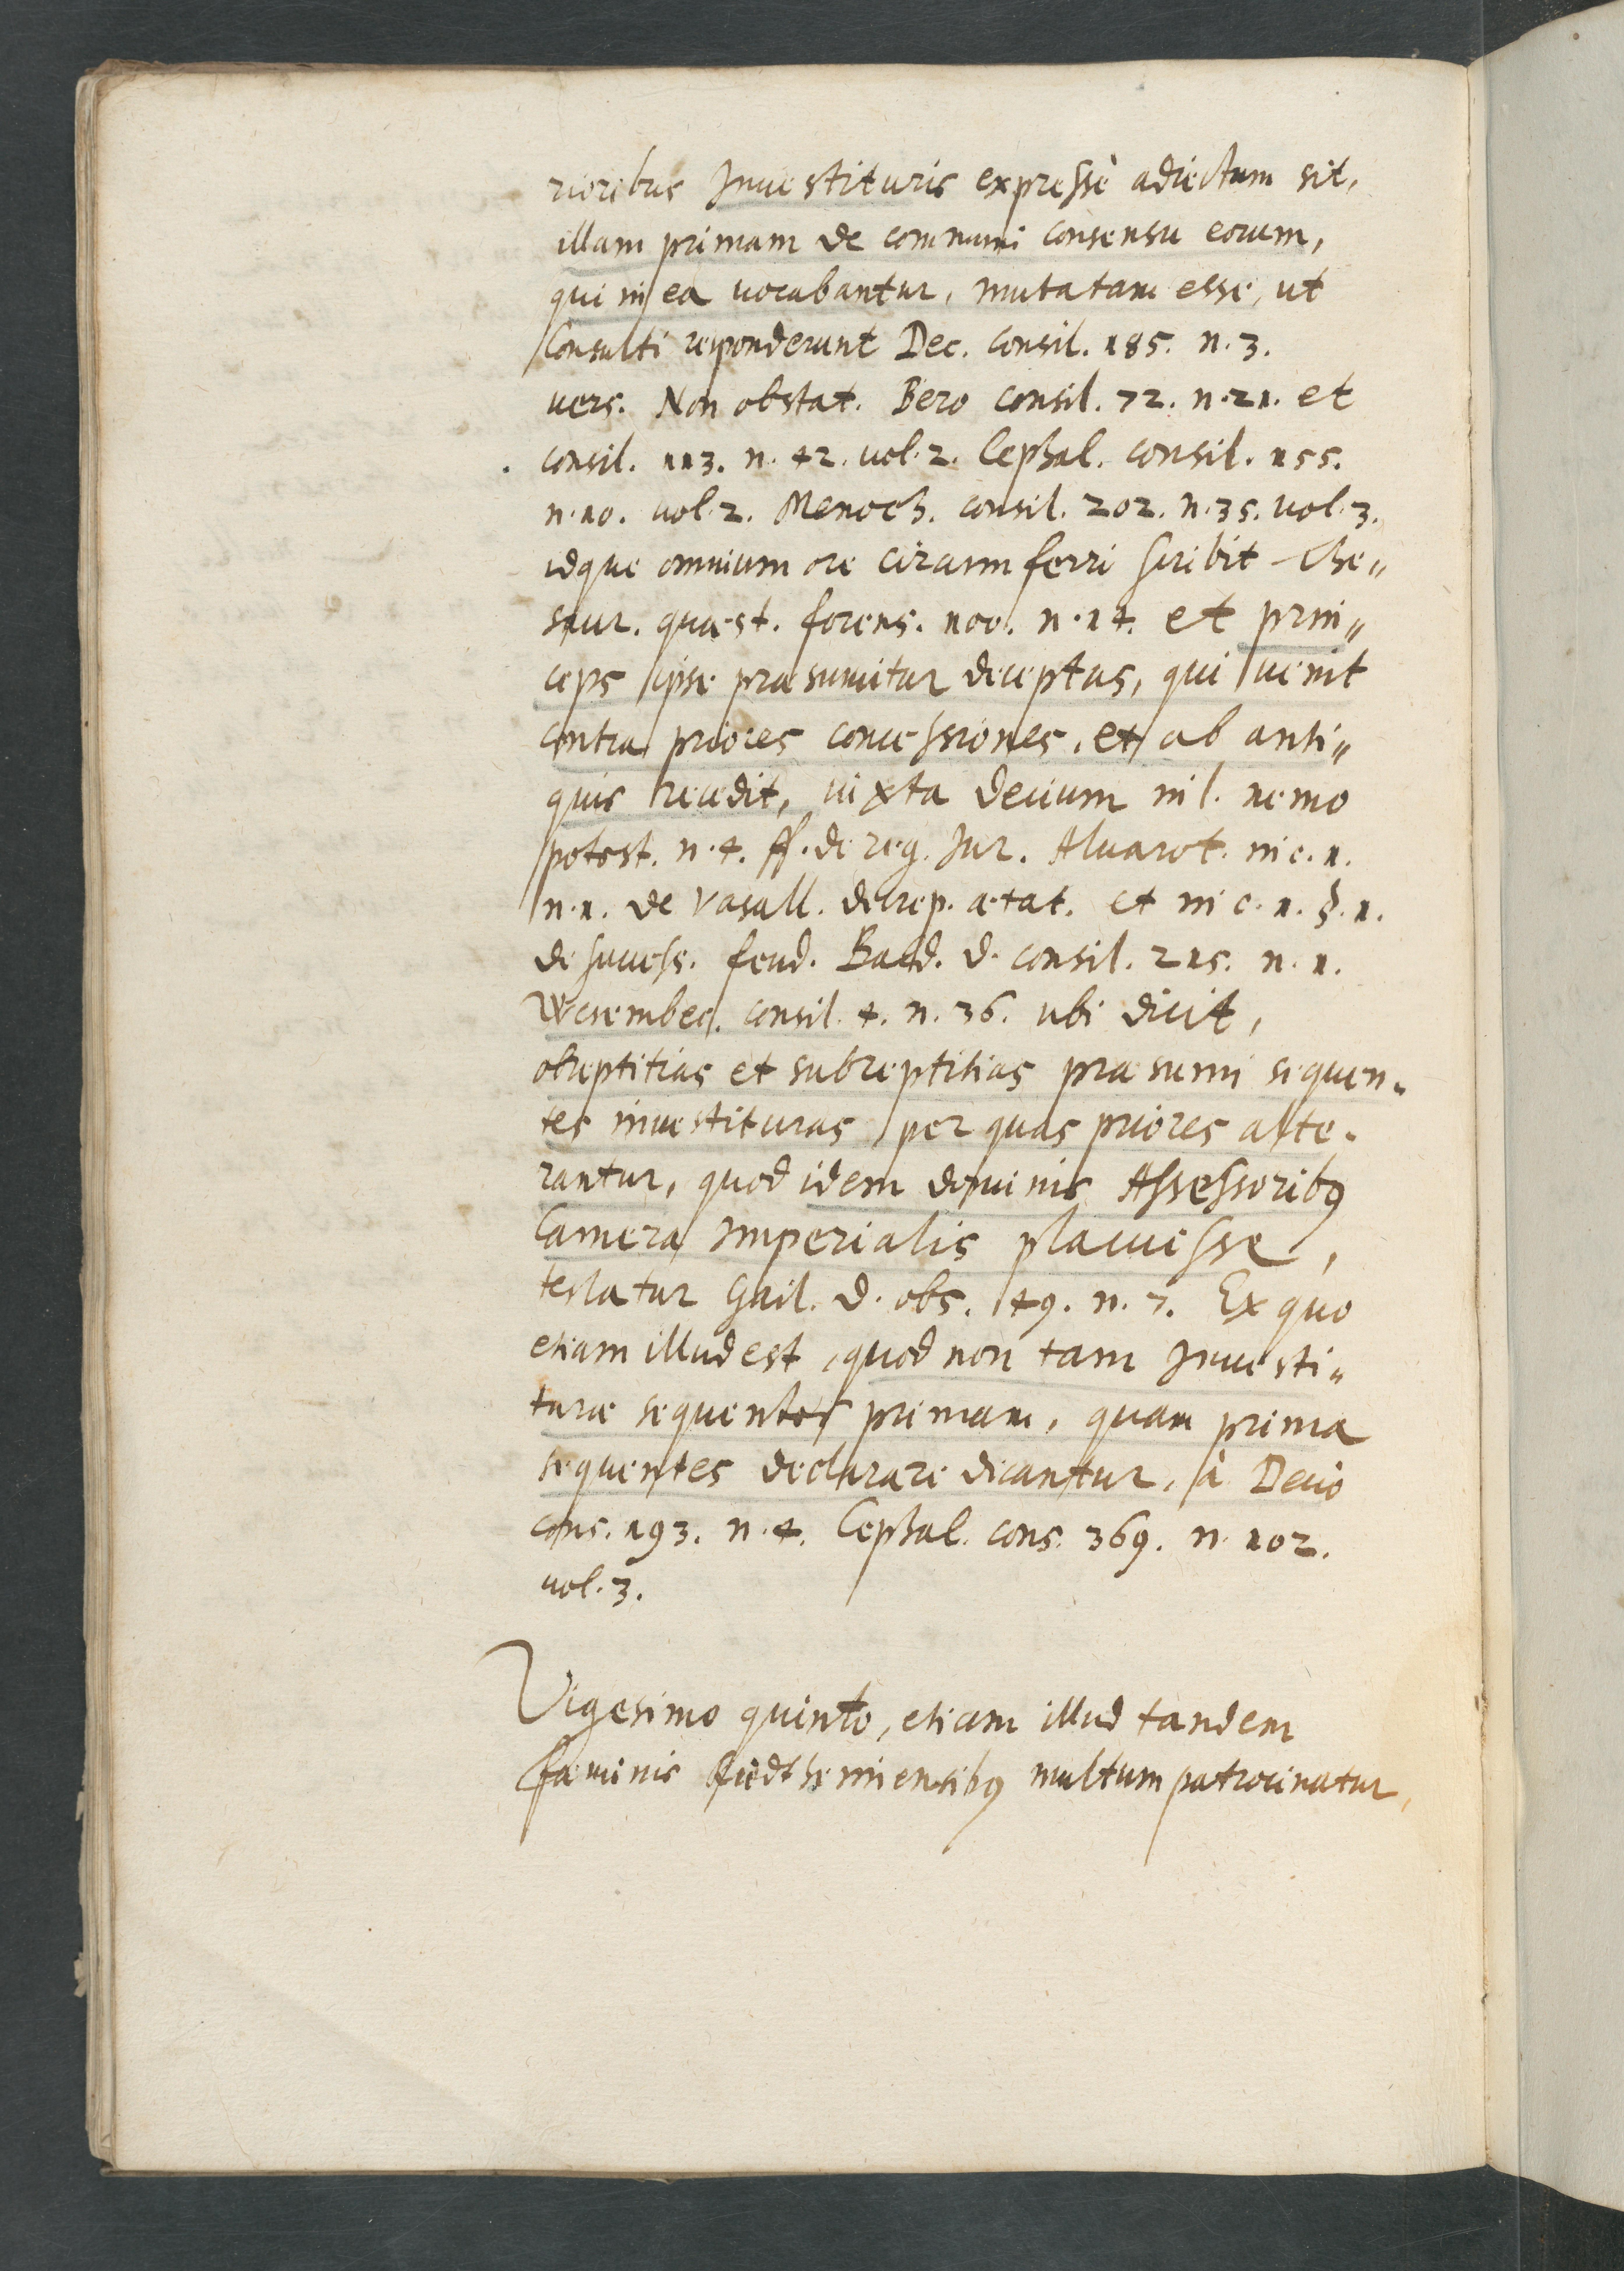 rioribus Inuestituris expressè adiectum sit,
illam primam de communi consensu eorum,
qui in ea vocabantur, mutatam esse, ut
Consulti responderunt Dec. consil. 185. n. 3.
vers. Non obstat. Bero consil. 72. n. 21. et
consil. 113. n. 42. vol. 2. Cephal. consil. 155.
n. 10. vol. 2. Menoch. consil. 202. n. 35. vol. 3.
idque omnium ore circumferri scribit The„
saur. quæst. forens. 100. n. 14. et prin„
ceps ipse præsumitur deceptus, qui venit
contra priores concessiones, et ab anti„
quis recedit, iuxta Decium in l. nemo
potest. n. 4. ff. de reg. Iur. Aluarot. in c. 1.
n. 1. de Vasall. decrep. ætat. et in c. 1. §. 1.
de success. feud. Bald. d. consil. 215. n. 1.
Wesembec. consil. 4. n. 36. ubi dicit,
obreptitias et subreptitias præsumi sequen-
tes inuestituras per quas priores alte-
rantur, quod idem dominis Assessoribꝰ
Camera Imperialis placuisse,
testatur Gail. d. obs. 49. n. 7. Ex quo
etiam illud est, quod non tam Inuesti„
turæ sequentes primam, quam prima
sequentes declarare dicantur, à Decio
cons. 193. n. 4. Cephal. cons. 369. n. 102.
vol. 3.
Vigesimo quinto, etiam illud tandem
fæminis multum patrocinatur,